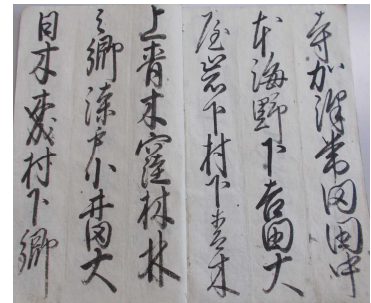 寺加澤常田田中
本海野下吉田大
屋岩下村下青木
上青木窪林林
之郷漆戸小井田大
日木村下郷